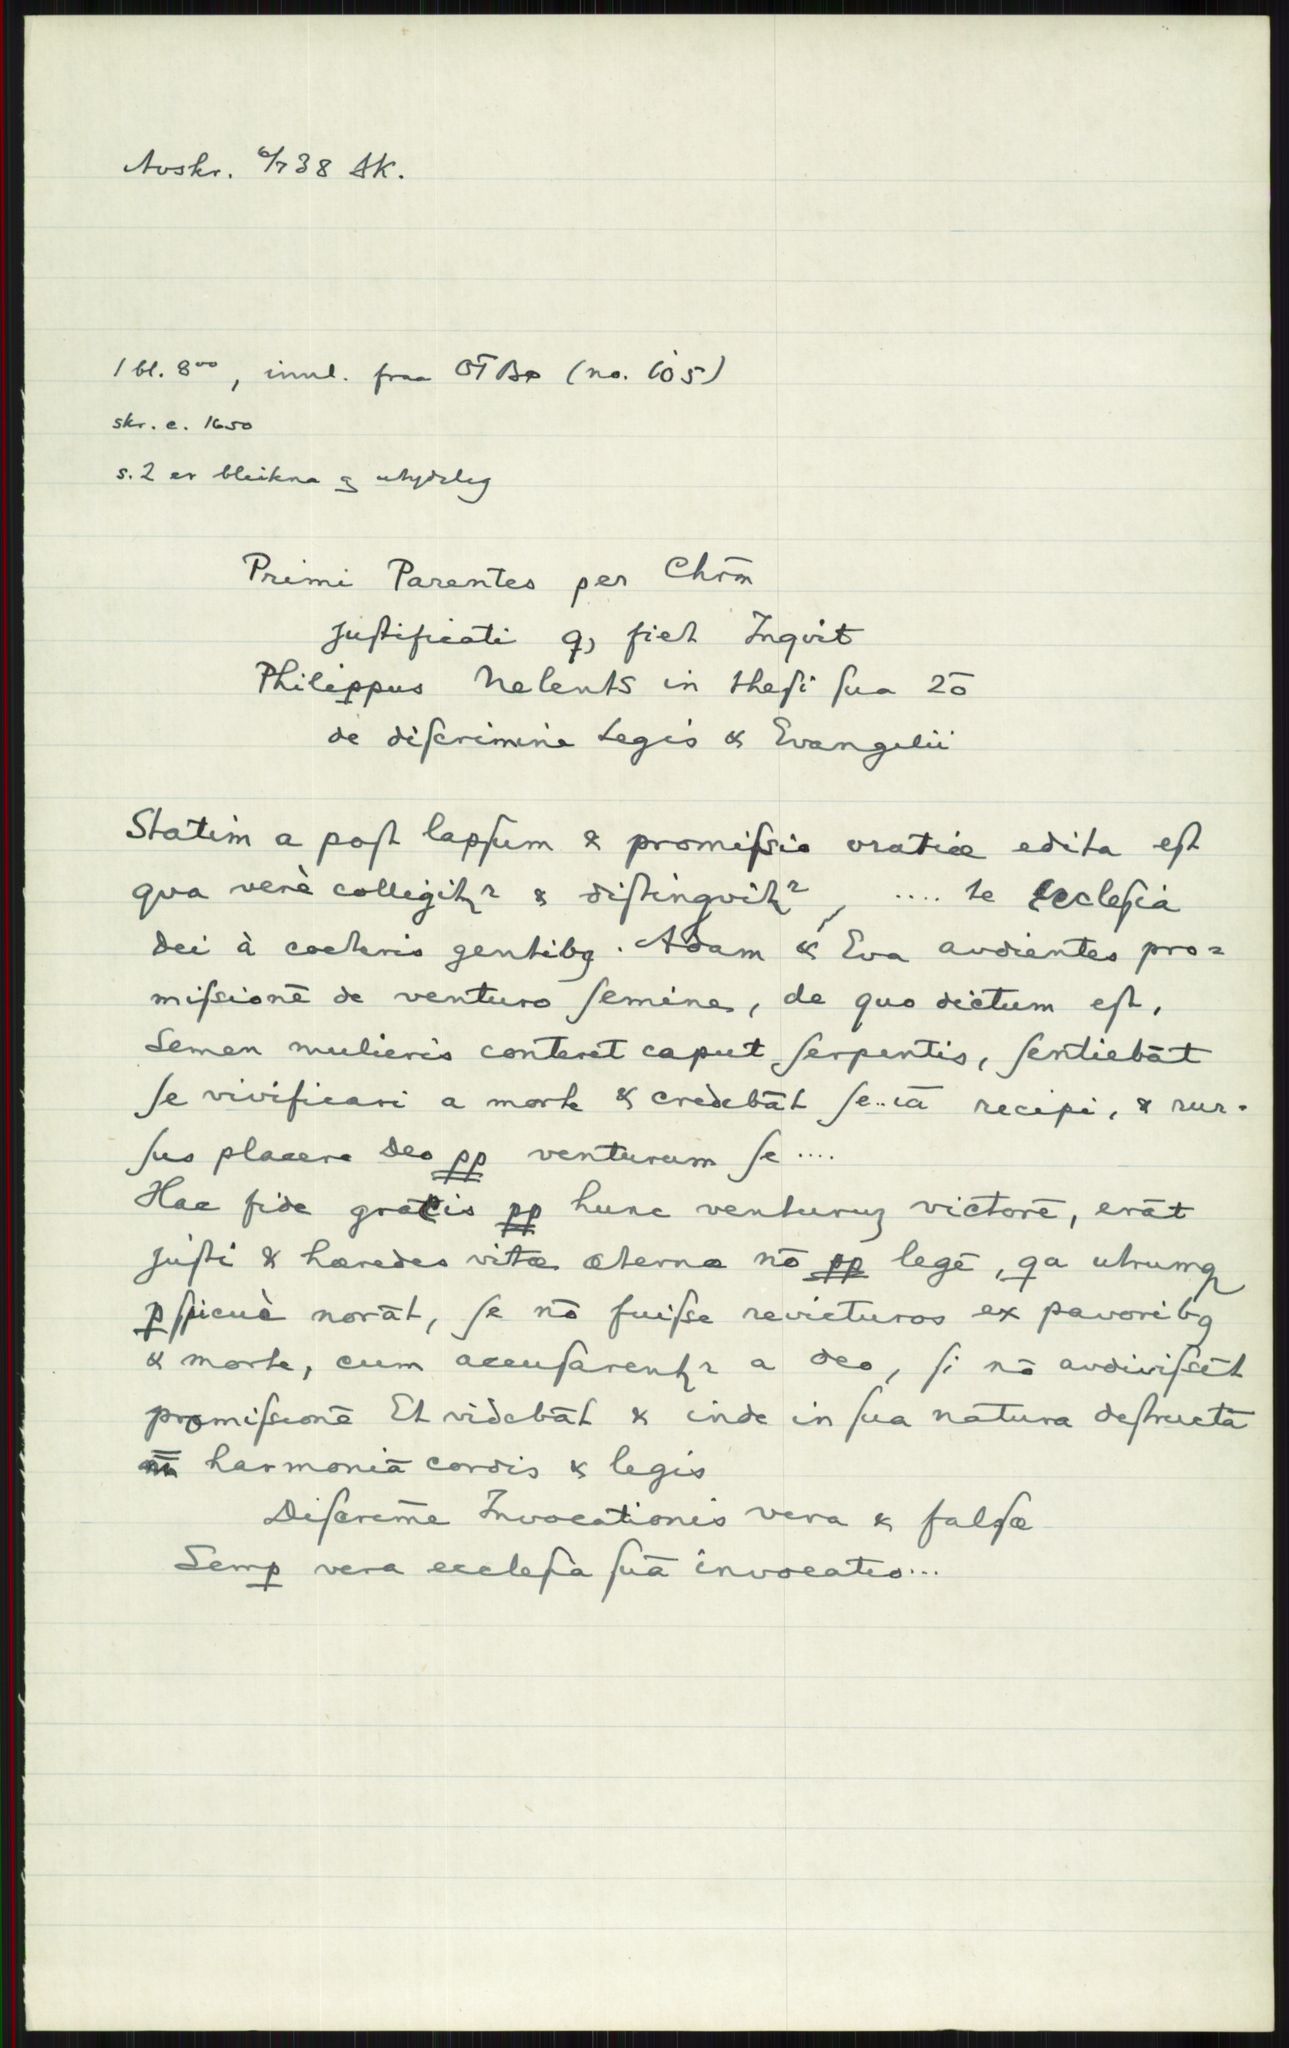 Avskr. 6/7 38 AK.
1 bl. 8vo, innl. fraa OTBø (no. 105)
skr. c. 1650
s. 2 er bleikna og utydeleg
Primi Parentes per Chr̄m
juſtificati q, fiet Inqvit
Philippus Melents in theſi ſua 2ō
de diſcrimine Legis & Evangelii
Statim a poſt lapſum & promiſsio gratiæ edita eſt
qva verè colligitꝛ & diſtingvitꝛ, .... te Ecclesia
Dei à coeteris gentibꝫ. Adam & Eva audientes pro=
miſsionē de venturo ſemine, de quo dictum eſt,
Semen mulieris conteret caput ſerpentis, ſentiebāt
ſe vivificari a morte & credebāt ſe..iā recipi, & rur-
ſus placere Deo pp venturum ſe ....
Hac fide gratis pp hunc venturuꝫ victorē, erāt
juſti & hæredes vitæ æternæ nō pp legē, qa utrumqꝫ
pſpicuè norāt, ſe nō fuiſse revicturos ex pavoribꝫ
& morte, cum accuſarentꝛ a deo, ſi nō audiviſsēt
promiſsionē Et videbāt & inde in ſua natura deſtructā
harmoniā cordis & legis
Diſcrim̄e Invocationis vera & falſæ
Semp vera eccleſia ſuā invocatio...